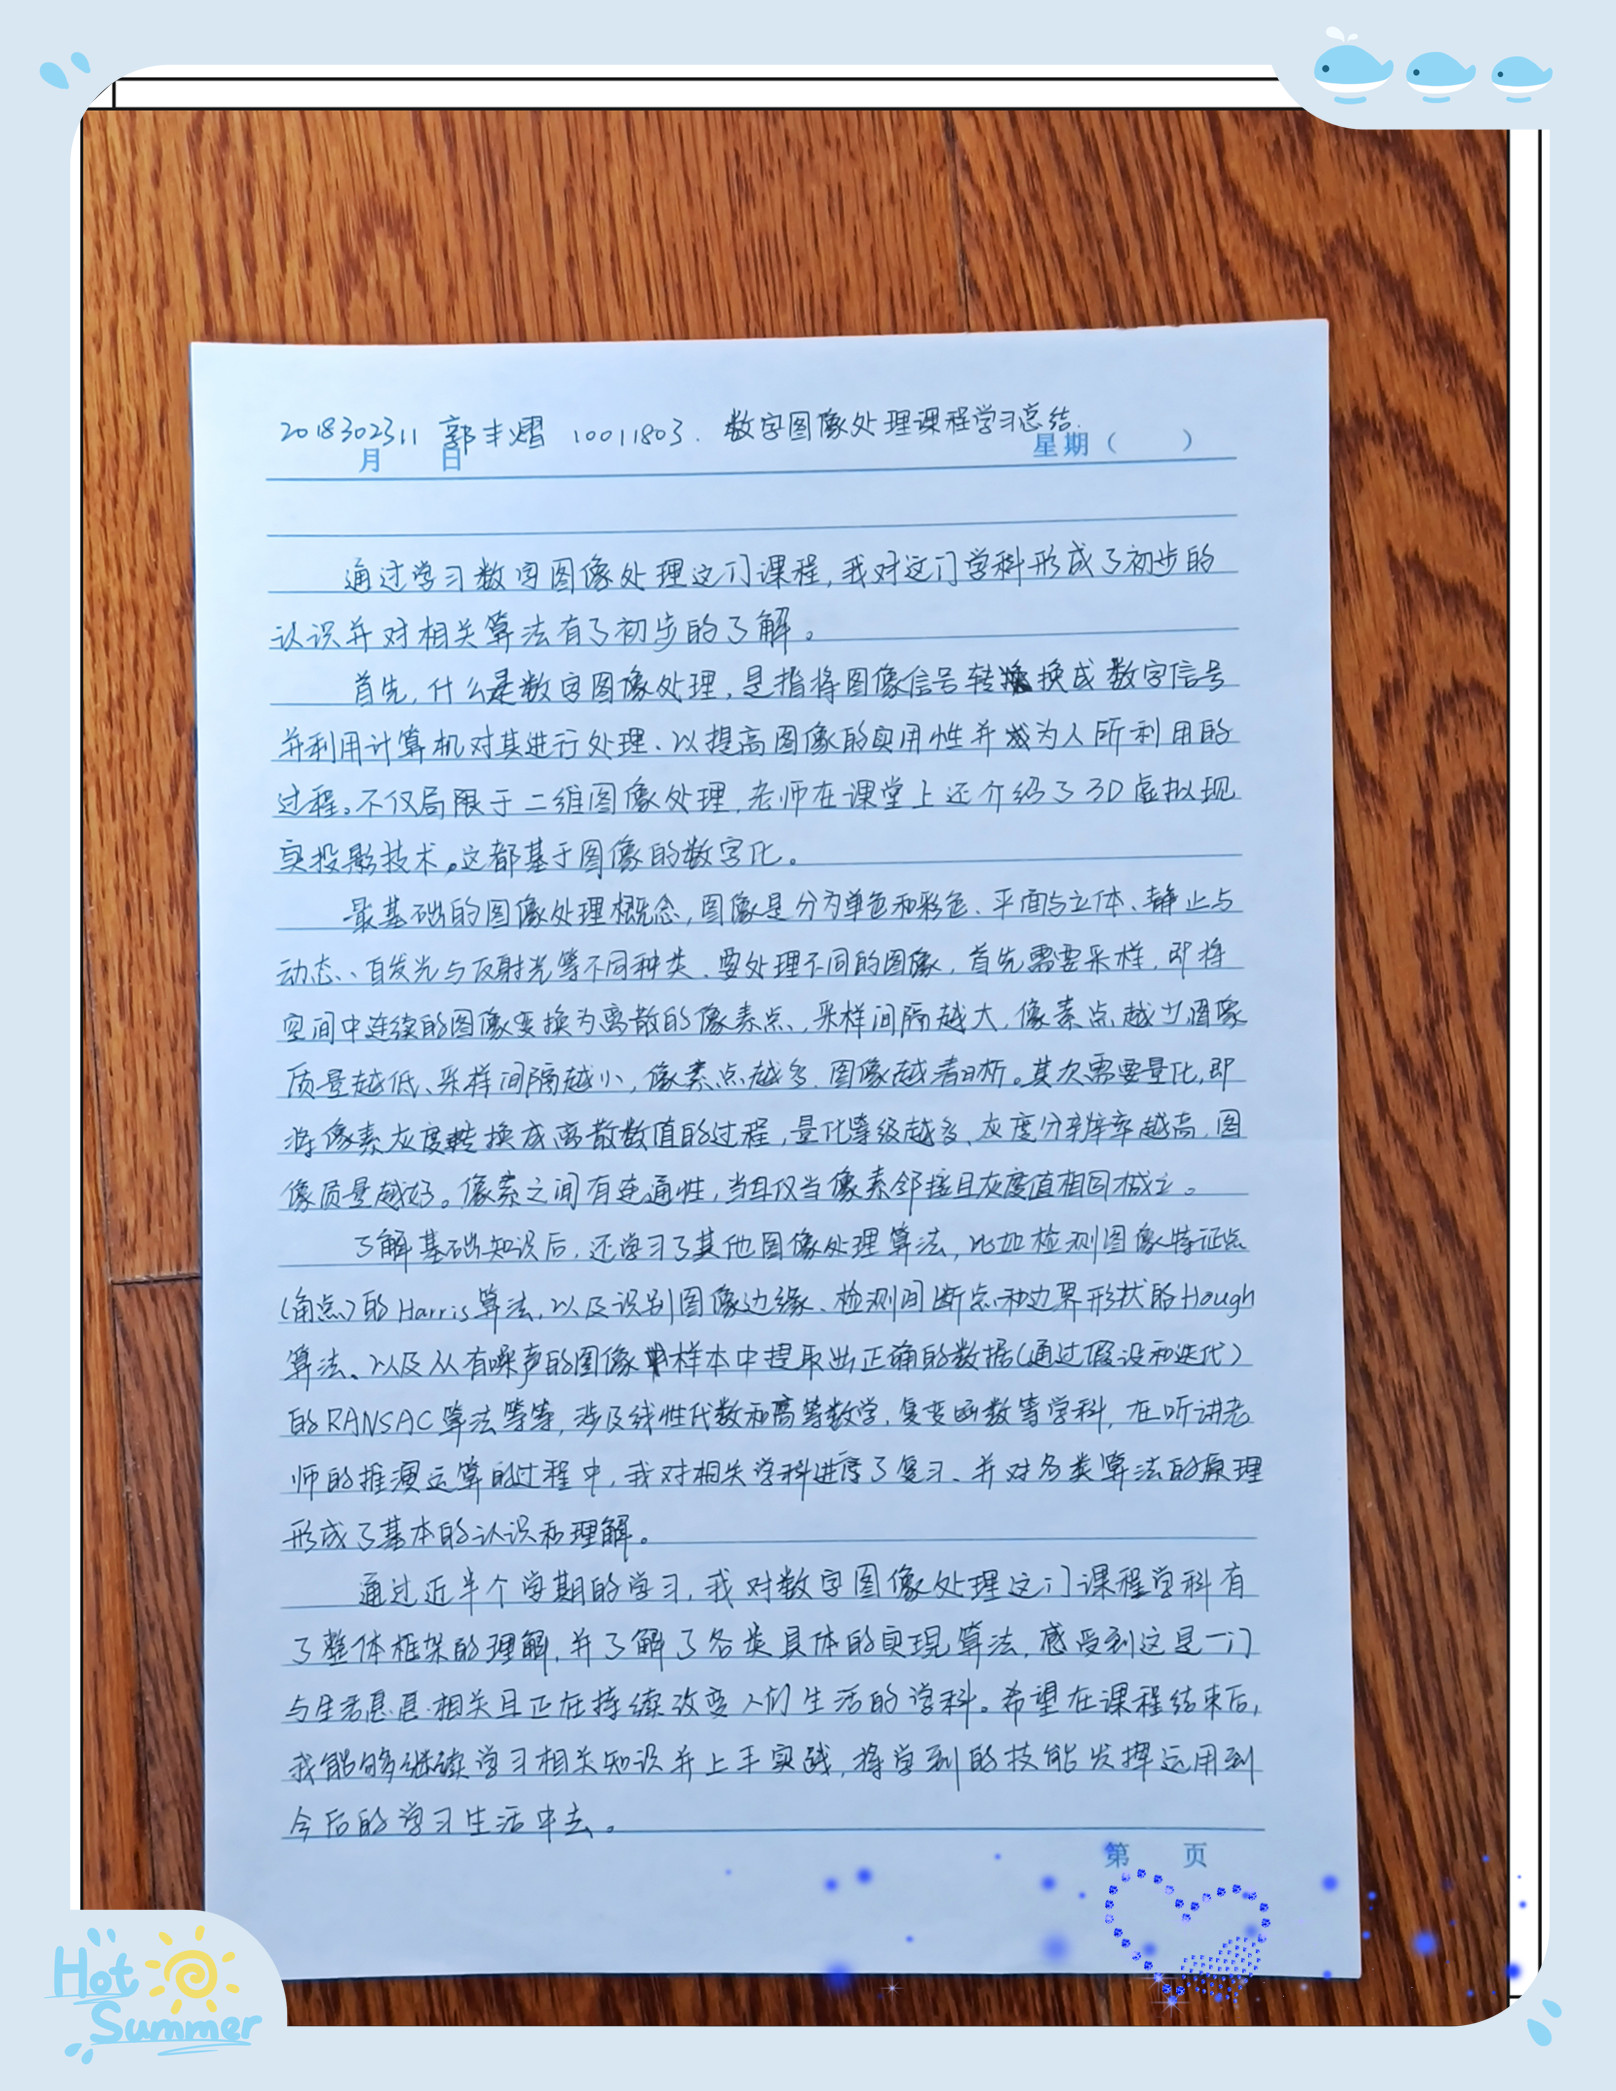 2018302311 郭丰熠 10011803. 数字图像处理课程学习总结.
月 日 星期（ ）
通过学习数字图像处理这门课程，我对这门学科形成了初步的
认识并对相关算法有了初步的了解。
首先，什么是数字图像处理，是指将图像信号转换成数字信号
并利用计算机对其进行处理、以提高图像的实用性并成为人所利用的
过程。不仅局限于二维图像处理，老师在课堂上还介绍了3D虚拟现
实投影技术。这都基于图像的数字化。
最基础的图像处理概念，图像是分为单色和彩色、平面与立体、静止与
动态、自发光与反射光等不同种类、要处理不同的图像，首先需要采样，即将
空间中连续的图像变换为离散的像素点，采样间隔越大，像素点越少图像
质量越低、采样间隔越小，像素点越多，图像越清晰。其次需要量化，即
将像素灰度转换成离散数值的过程，量化等级越多、灰度分辨率越高，图
像质量越好。像素之间有连通性，当且仅当像素邻接且灰度值相同成立。
了解基础知识后，还学习了其他图像处理算法，比如检测图像特征点
（角点）的Harris算法，以及识别图像边缘、检测间断点和边界形状的Hough
算法、以及从有噪声的图像样本中提取出正确的数据（通过假设和迭代）
的RANSAC算法等等，涉及线性代数和高等数学，复变函数等学科，在听讲老
师的推演运算的过程中，我对相关学科进行了复习、并对各类算法的原理
形成了基本的认识和理解。
通过近半个学期的学习，我对数字图像处理这门课程学科有
了整体框架的理解，并了解了各类具体的实现算法，感受到这是一门
与生活息息相关且正在持续改变人们生活的学科。希望在课程结束后，
我能够继续学习相关知识并上手实践，将学到的技能发挥运用到
今后的学习生活中去。
第 页
Hot
Summer